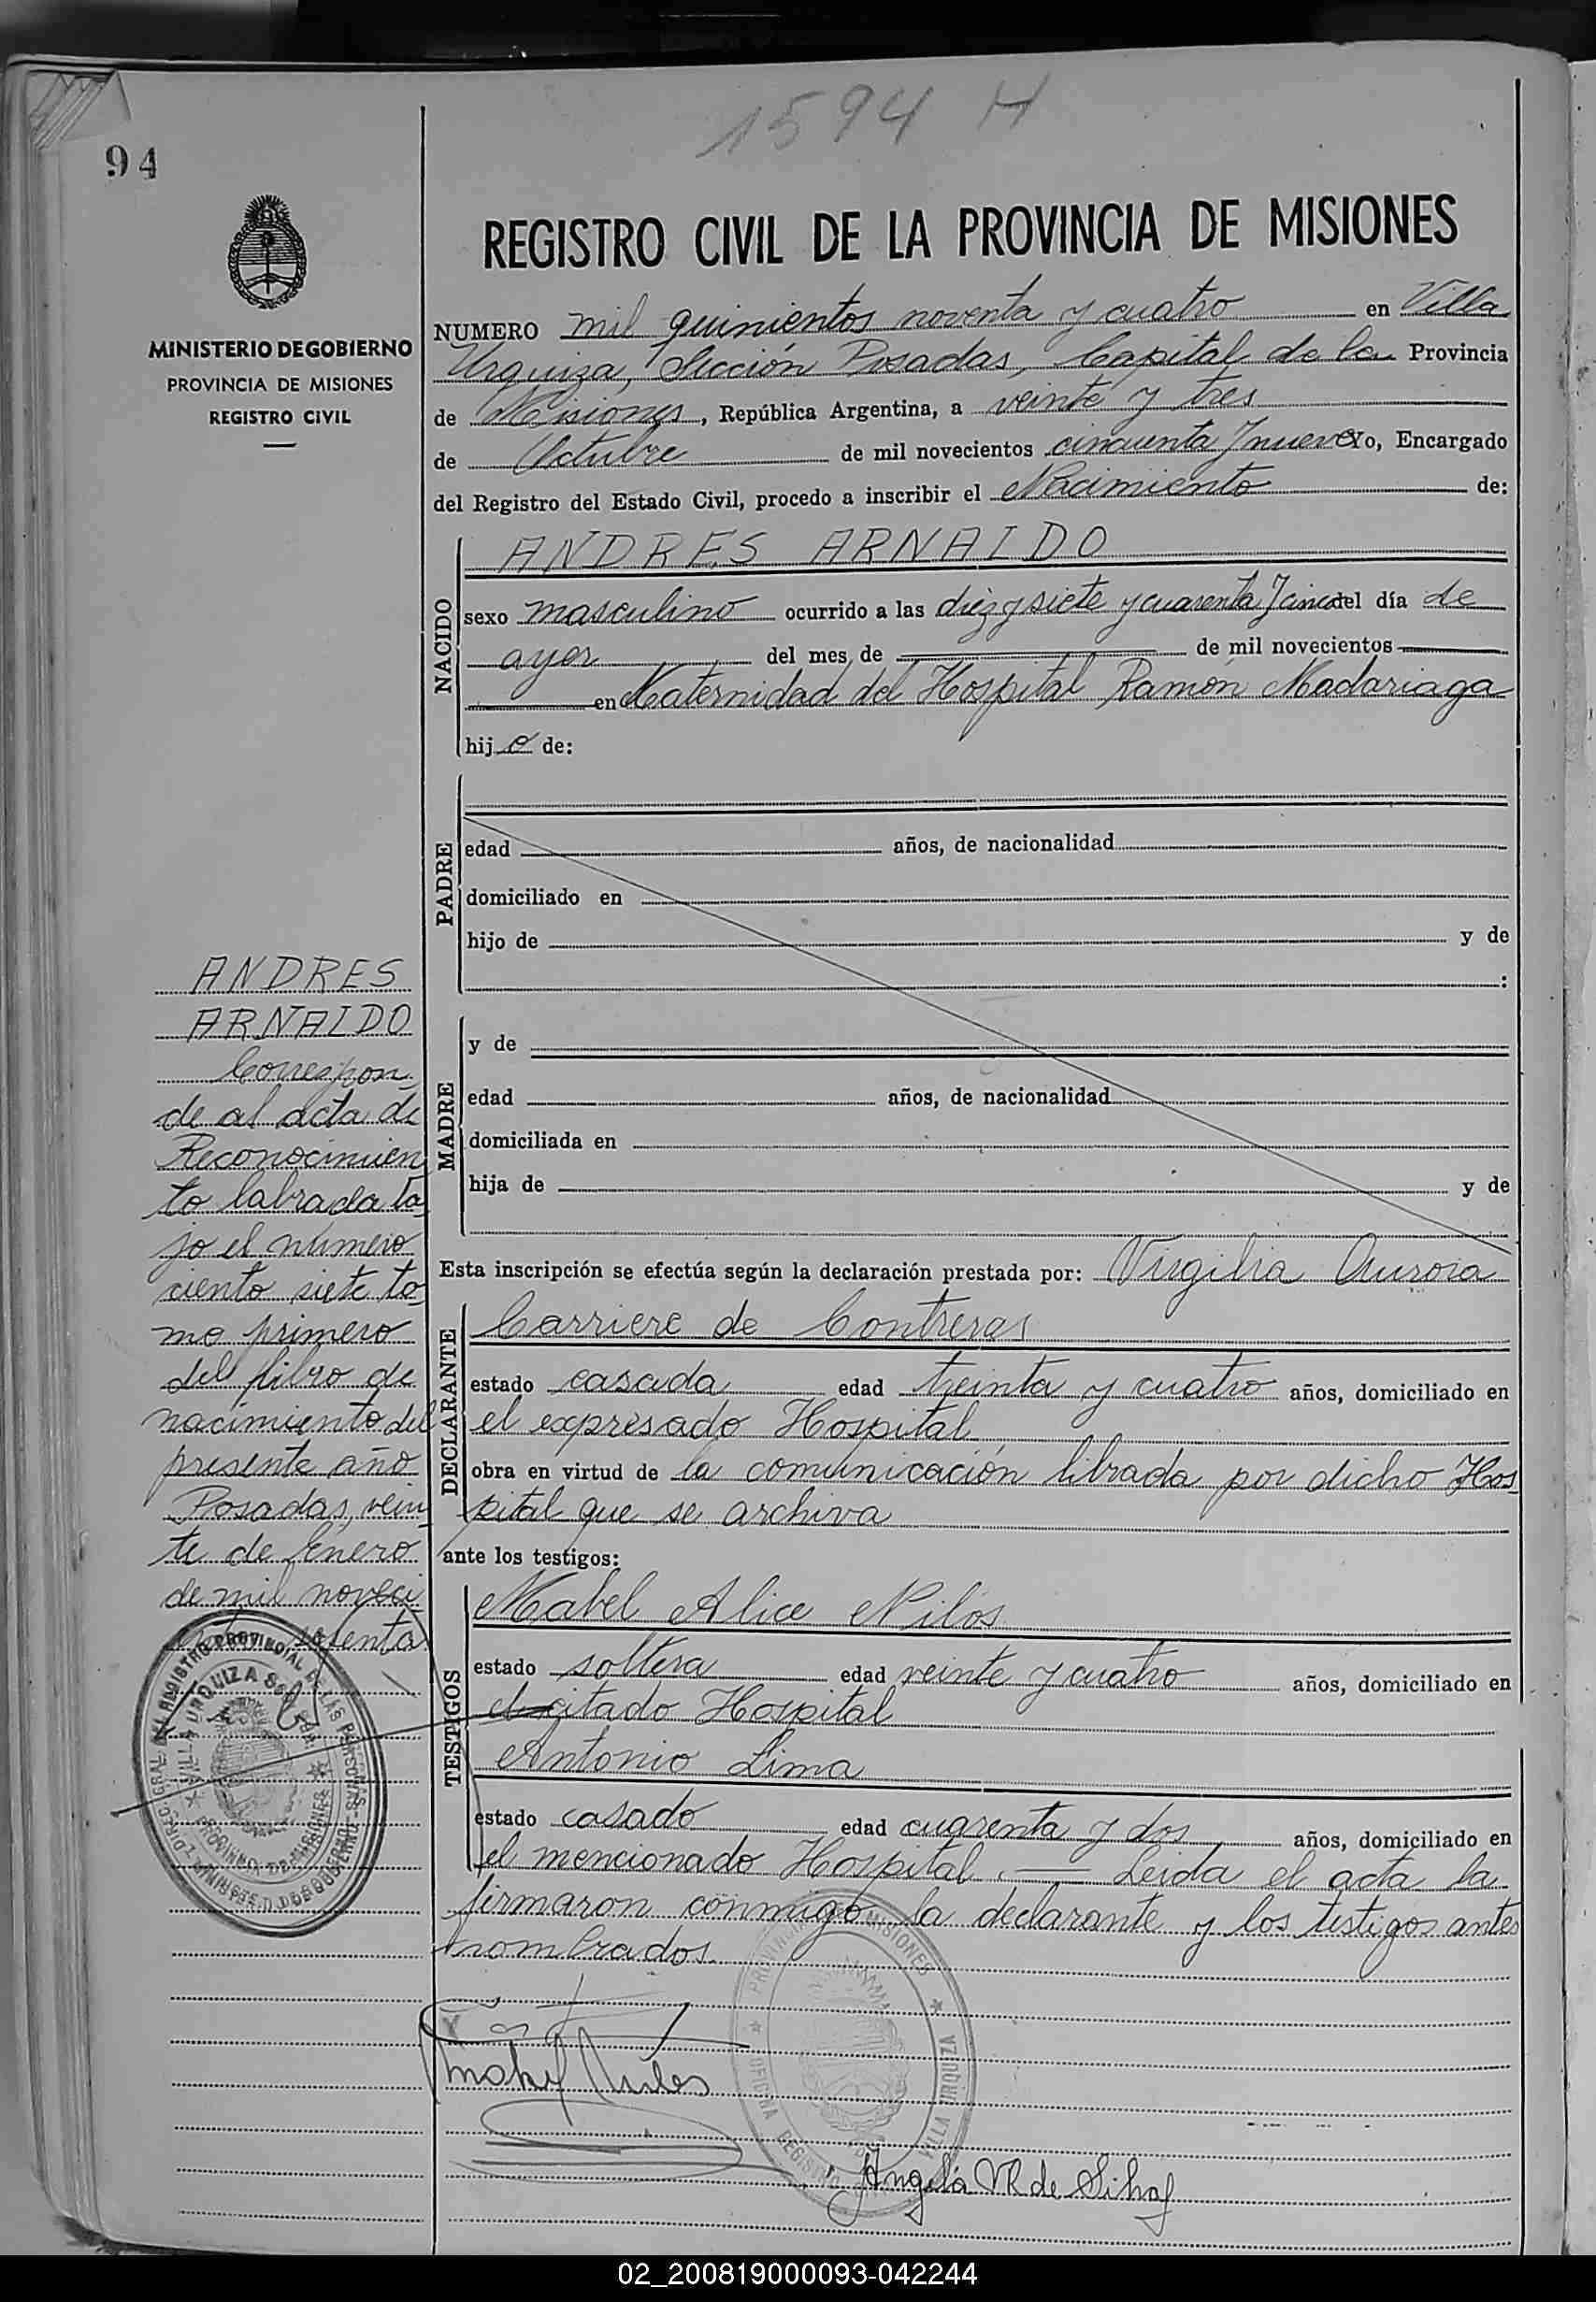 1594 H
94
REGISTRO CIVIL DE LA PROVINCIA DE MISIONES
MINISTERIO DE GOBIERNO
PROVINCIA DE MISIONES
REGISTRO CIVIL
NUMERO mil quinientos noventa y cuatro en Villa
Urquiza, Sección Posadas, Capital de la Provincia
de Misiones, República Argentina, a veinte y tres
de Octubre de mil novecientos cincuenta y nueve yo, Encargado
del Registro del Estado Civil, procedo a inscribir el Nacimiento de:
NACIDO
ANDRES ARNALDO
sexo masculino ocurrido a las diez y siete y cuarenta y cinco del día de
ayer del mes de de mil novecientos
en Maternidad del Hospital Ramón Madariaga
hijo de:
PADRE
edad años, de nacionalidad
domiciliado en
hijo de y de
:
MADRE
y de
edad años, de nacionalidad
domiciliada en
hija de y de
Esta inscripción se efectúa según la declaración prestada por: Virgilia Aurora
DECLARANTE
Carriere de Contreras
estado casada edad treinta y cuatro años, domiciliado en
el expresado Hospital
obra en virtud de la comunicación librada por dicho Hos
pital que se archiva
ante los testigos:
TESTIGOS
Mabel Alice Nilos
estado soltera edad veinte y cuatro años, domiciliado en
el citado Hospital
Antonio Lima
estado casado edad cuarenta y dos años, domiciliado en
el mencionado Hospital. — Leida el acta la
firmaron conmigo la declarante y los testigos antes
nombrados.
ANDRES
ARNALDO
Correspon-
de al acta de
Reconocimien
to labrada ba-
jo el número
ciento siete to-
mo primero
del libro de
nacimiento del
presente año
Posadas, vein-
te de Enero
de mil noveci
sesenta
Angela VR de Silva
PROVINCIA MISIONES * VILLA URQUIZA
OFICINA REGISTRO
02_200819000093-042244